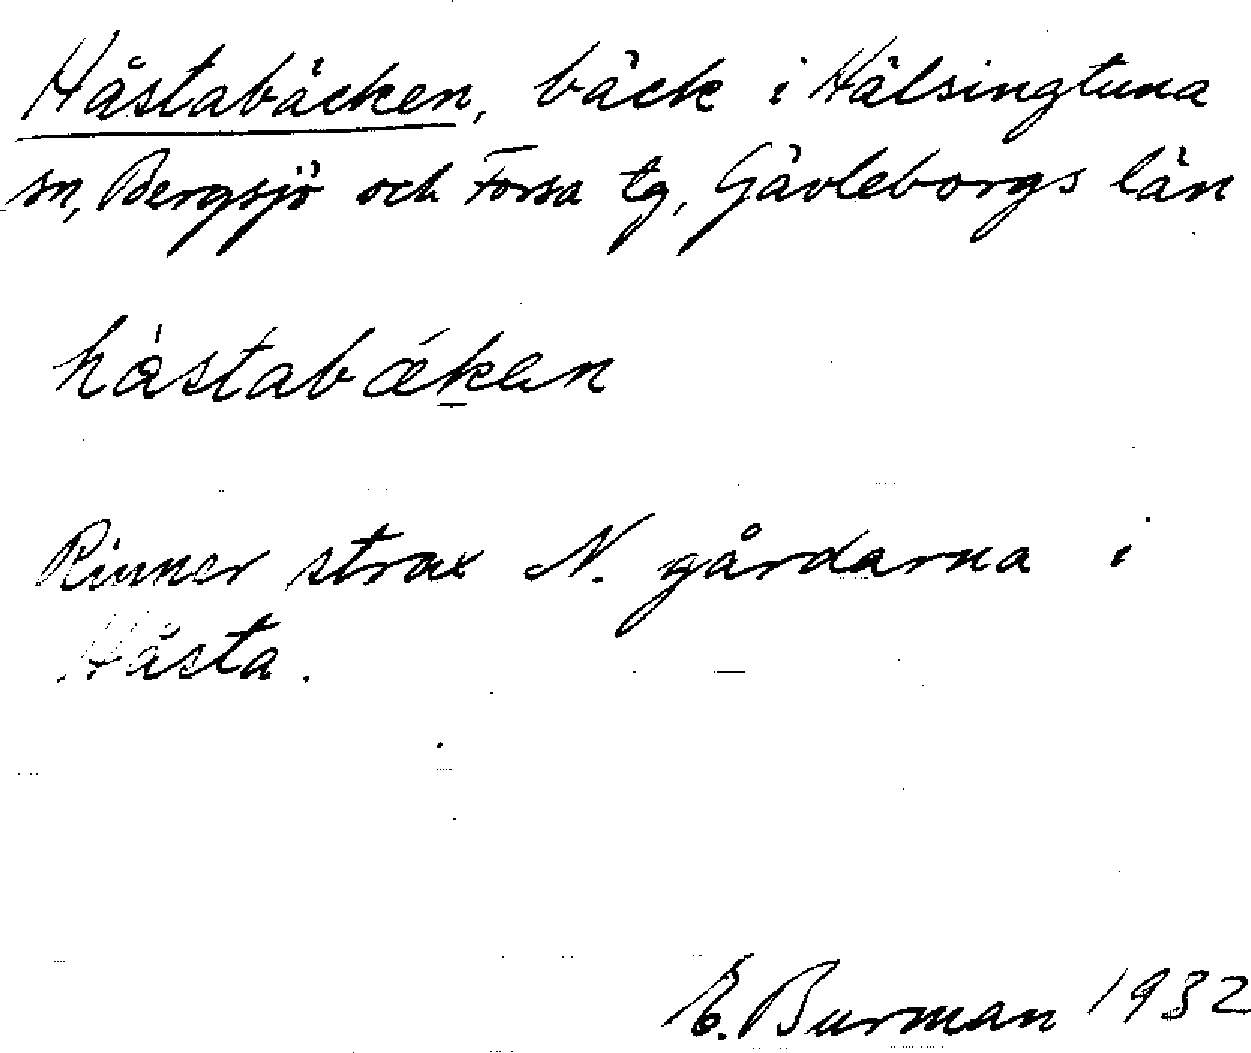 Håstabäcken, bäck i Hälsingtuna
sn, Bergsjö och Forsa tg, Gävleborgs län
håstabǽken
Rinner strax N. gårdarna i
Håsta.
E. Burman 1932